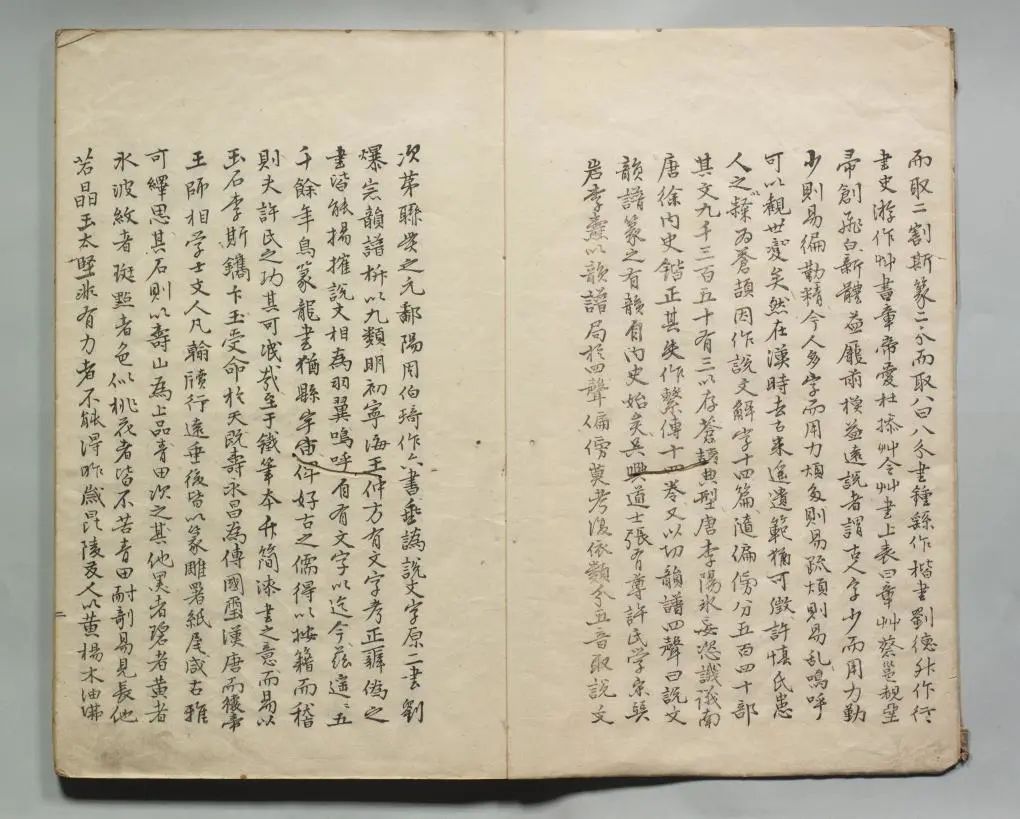 而取二割斯篆二分而取八曰八分書種繇作楷書劉德升作行
書史游作艸書章帝愛杜操艸令艸書上表曰章艸蔡邕規堊
帚創飛白新體益龐雨樸益遠說者謂古人字少而用力勤
少則易偏勤精今人多字而用力煩多則易疏煩則易乱嗚呼
可以觀世變矣然在漢時去古未遙遺範猶可徵許慎氏患
人之釋為蒼頡因作說文解字十四篇隨偏傍分五百四十部
其文九千三百五十有三以存蒼頡典型唐李陽氷妄恣譏議南
唐徐內史鍇正其失作繫傳十四卷又以切韻譜四聲曰說文
韻譜篆之有韻自內史始矣吳興道士張有尊許氏学宋巽
岩李燾以韻譜局於四聲偏傍莫考復依類分五音取說文
次苐聯貫之元鄱陽周伯琦作六書垂譌說文字原二書劉
爆宗韻譜枡以九類明初寧海王仲方有文字考正彈偽之
書皆能揚搉說文相為羽翼嗚呼自有文字以迄今茲遙五
千餘年鳥篆龍書猶縣宇宙俾好古之儒得以按籍而稽
則夫許氏之功其可泯哉至于鐵筆本于簡漆書之意而易以
玉石李斯鐫卞玉受命於天既壽永昌為傳國璽漢唐而後
王師相学士文人凡翰牘行遠垂後皆以篆雕署紙尾咸古雅
可繹思其石則以壽山為上品青田次之其他黑者碧者黃者
氷波紋者斑點者色似桃花者皆不若青田耐剞易見長他
若晶玉太堅非有力者不能得昨歲毘陵友人以黃楊木油沸